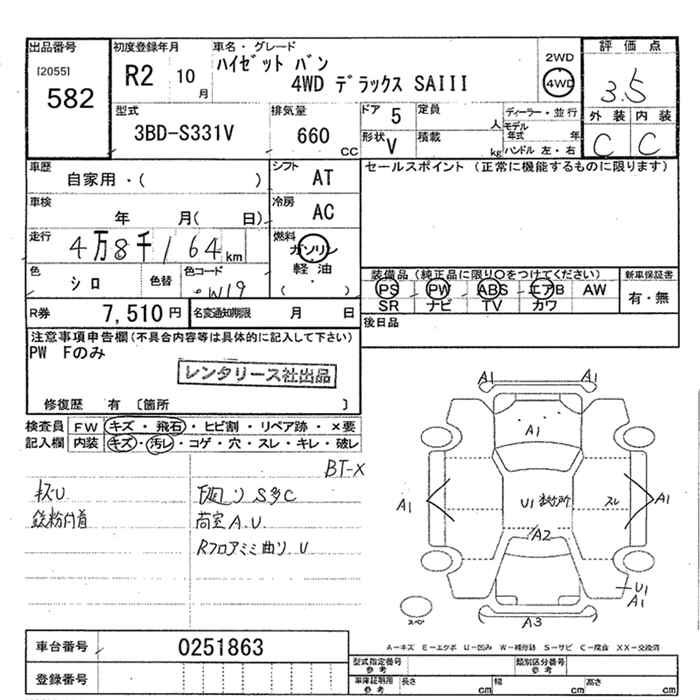 出品番号
[2055]
582
初度登録年月
R2 10月
車名・グレード
ハイゼット バン
4WD デラックス SAIII
2WD
4WD
評価点
3.5
外装 内装
C C
型式
3BD-S331V
排気量
660 CC
ドア 5
定員 人
形状 V
積載 kg
ディーラー・並行
モデル年式 年
ハンドル 左・右
車歴
自家用・( )
シフト
AT
セールスポイント (正常に機能するものに限ります)
車検
年 月( 日)
冷房
AC
走行
4万8千164km
燃料
ガソリン
軽油
( )
色
シロ
色替
色コード
W19
装備品 (純正品に限り○をつけてください)
PS PW ABS エアB AW
SR ナビ TV カワ
新車保証書
有・無
R券 7,510円
名変通知期限 月 日
後日品
注意事項申告欄(不具合内容等は具体的に記入して下さい)
PW Fのみ
レンタリース社出品
修復歴 有 [箇所 ]
検査員
記入欄
FW キズ・飛石・ヒビ割・リペア跡・×要
内装 キズ・汚レ・コゲ・穴・スレ・キレ・破レ
BT-X
キズU
鉄粉付着
下回り S多C
荷室 A.U
Rフロアミミ曲り U
A1 A1
A1
A1 U1 スレ A1
A2
U1
A1
A3
スペア
A-キズ E-エクボ U-凹み W-補修跡 S-サビ C-腐食 XX-交換済
車台番号 0251863
登録番号
型式指定番号
参考
類別区分番号
参考
車庫証明用
参考
長さ cm 幅 cm 高さ cm